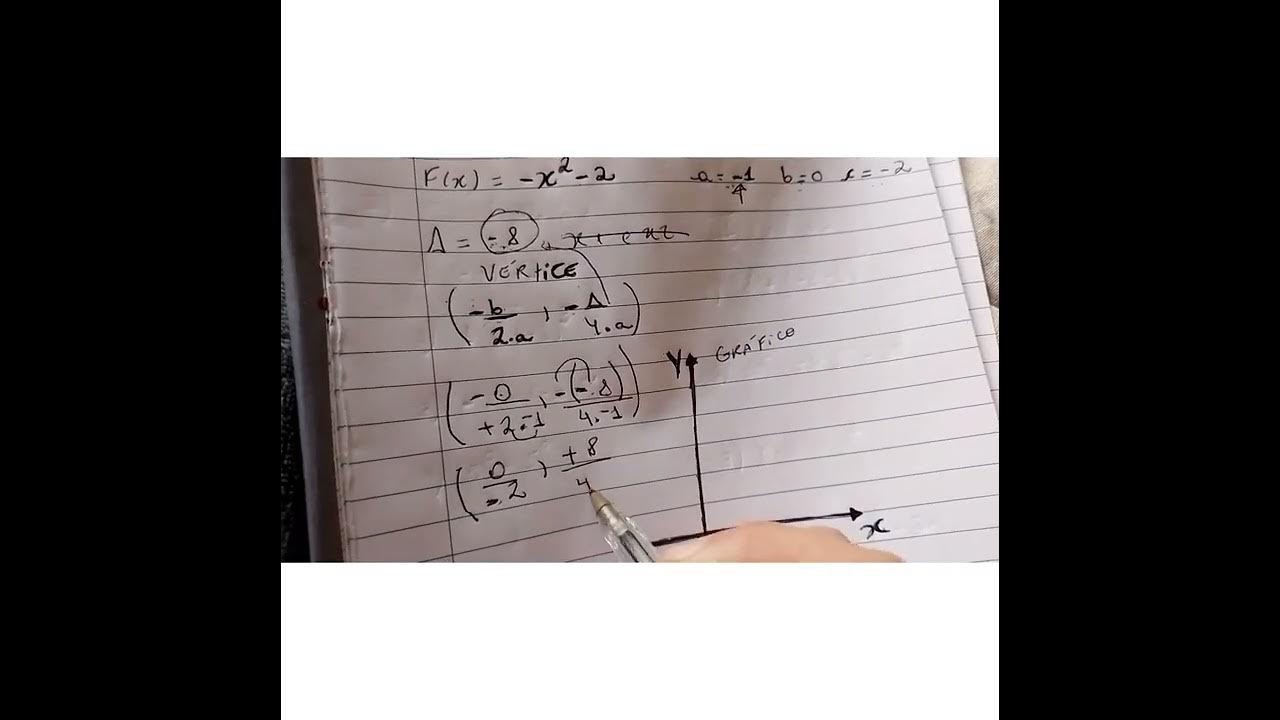 F(x) = -x² - 2 a = -1 b = 0 c = -2
Δ = -8
VÉRTICE
( -b/2.a , -Δ/4.a )
GRÁFICO
Y
( -0/+2.-1 , -(-8)/4.-1 )
( 0/-2 , +8/4
x